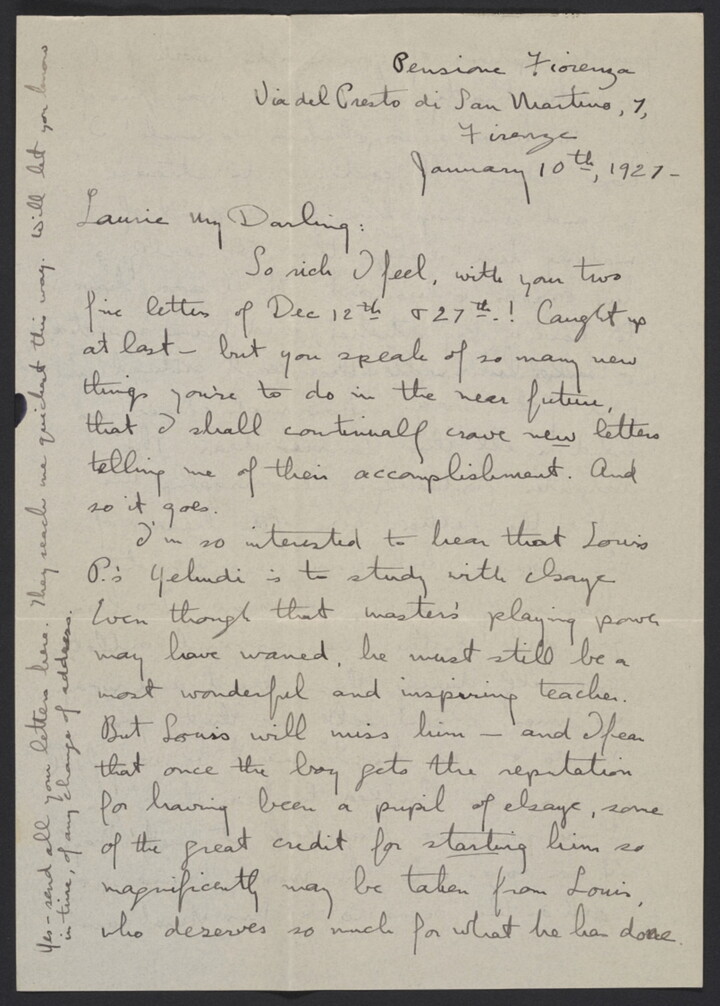 Pensione Fiorenza
Via del Presto di San Martino, 7,
Firenze
January 10th, 1927-
Laurie My Darling:
So rich I feel, with your two
fine letters of Dec 12th & 27th.! Caught up
at last - but you speak of so many new
things you're to do in the near future,
that I shall continually crave new letters
telling me of their accomplishment. And
so it goes.
I'm so interested to hear that Louis
P.'s Yehudi is to study with Isaye
Even though that master's playing power
may have waned, he must still be a
most wonderful and inspiring teacher.
But Louis will miss him - and I fear
that once the boy gets the reputation
for having been a pupil of Isaye, some
of the great credit for starting him so
magnificently may be taken from Louis,
who deserves so much for what he has done.
Yes - send all your letters here. They reach me quickest this way. Will let you know
in time, of any change of address.